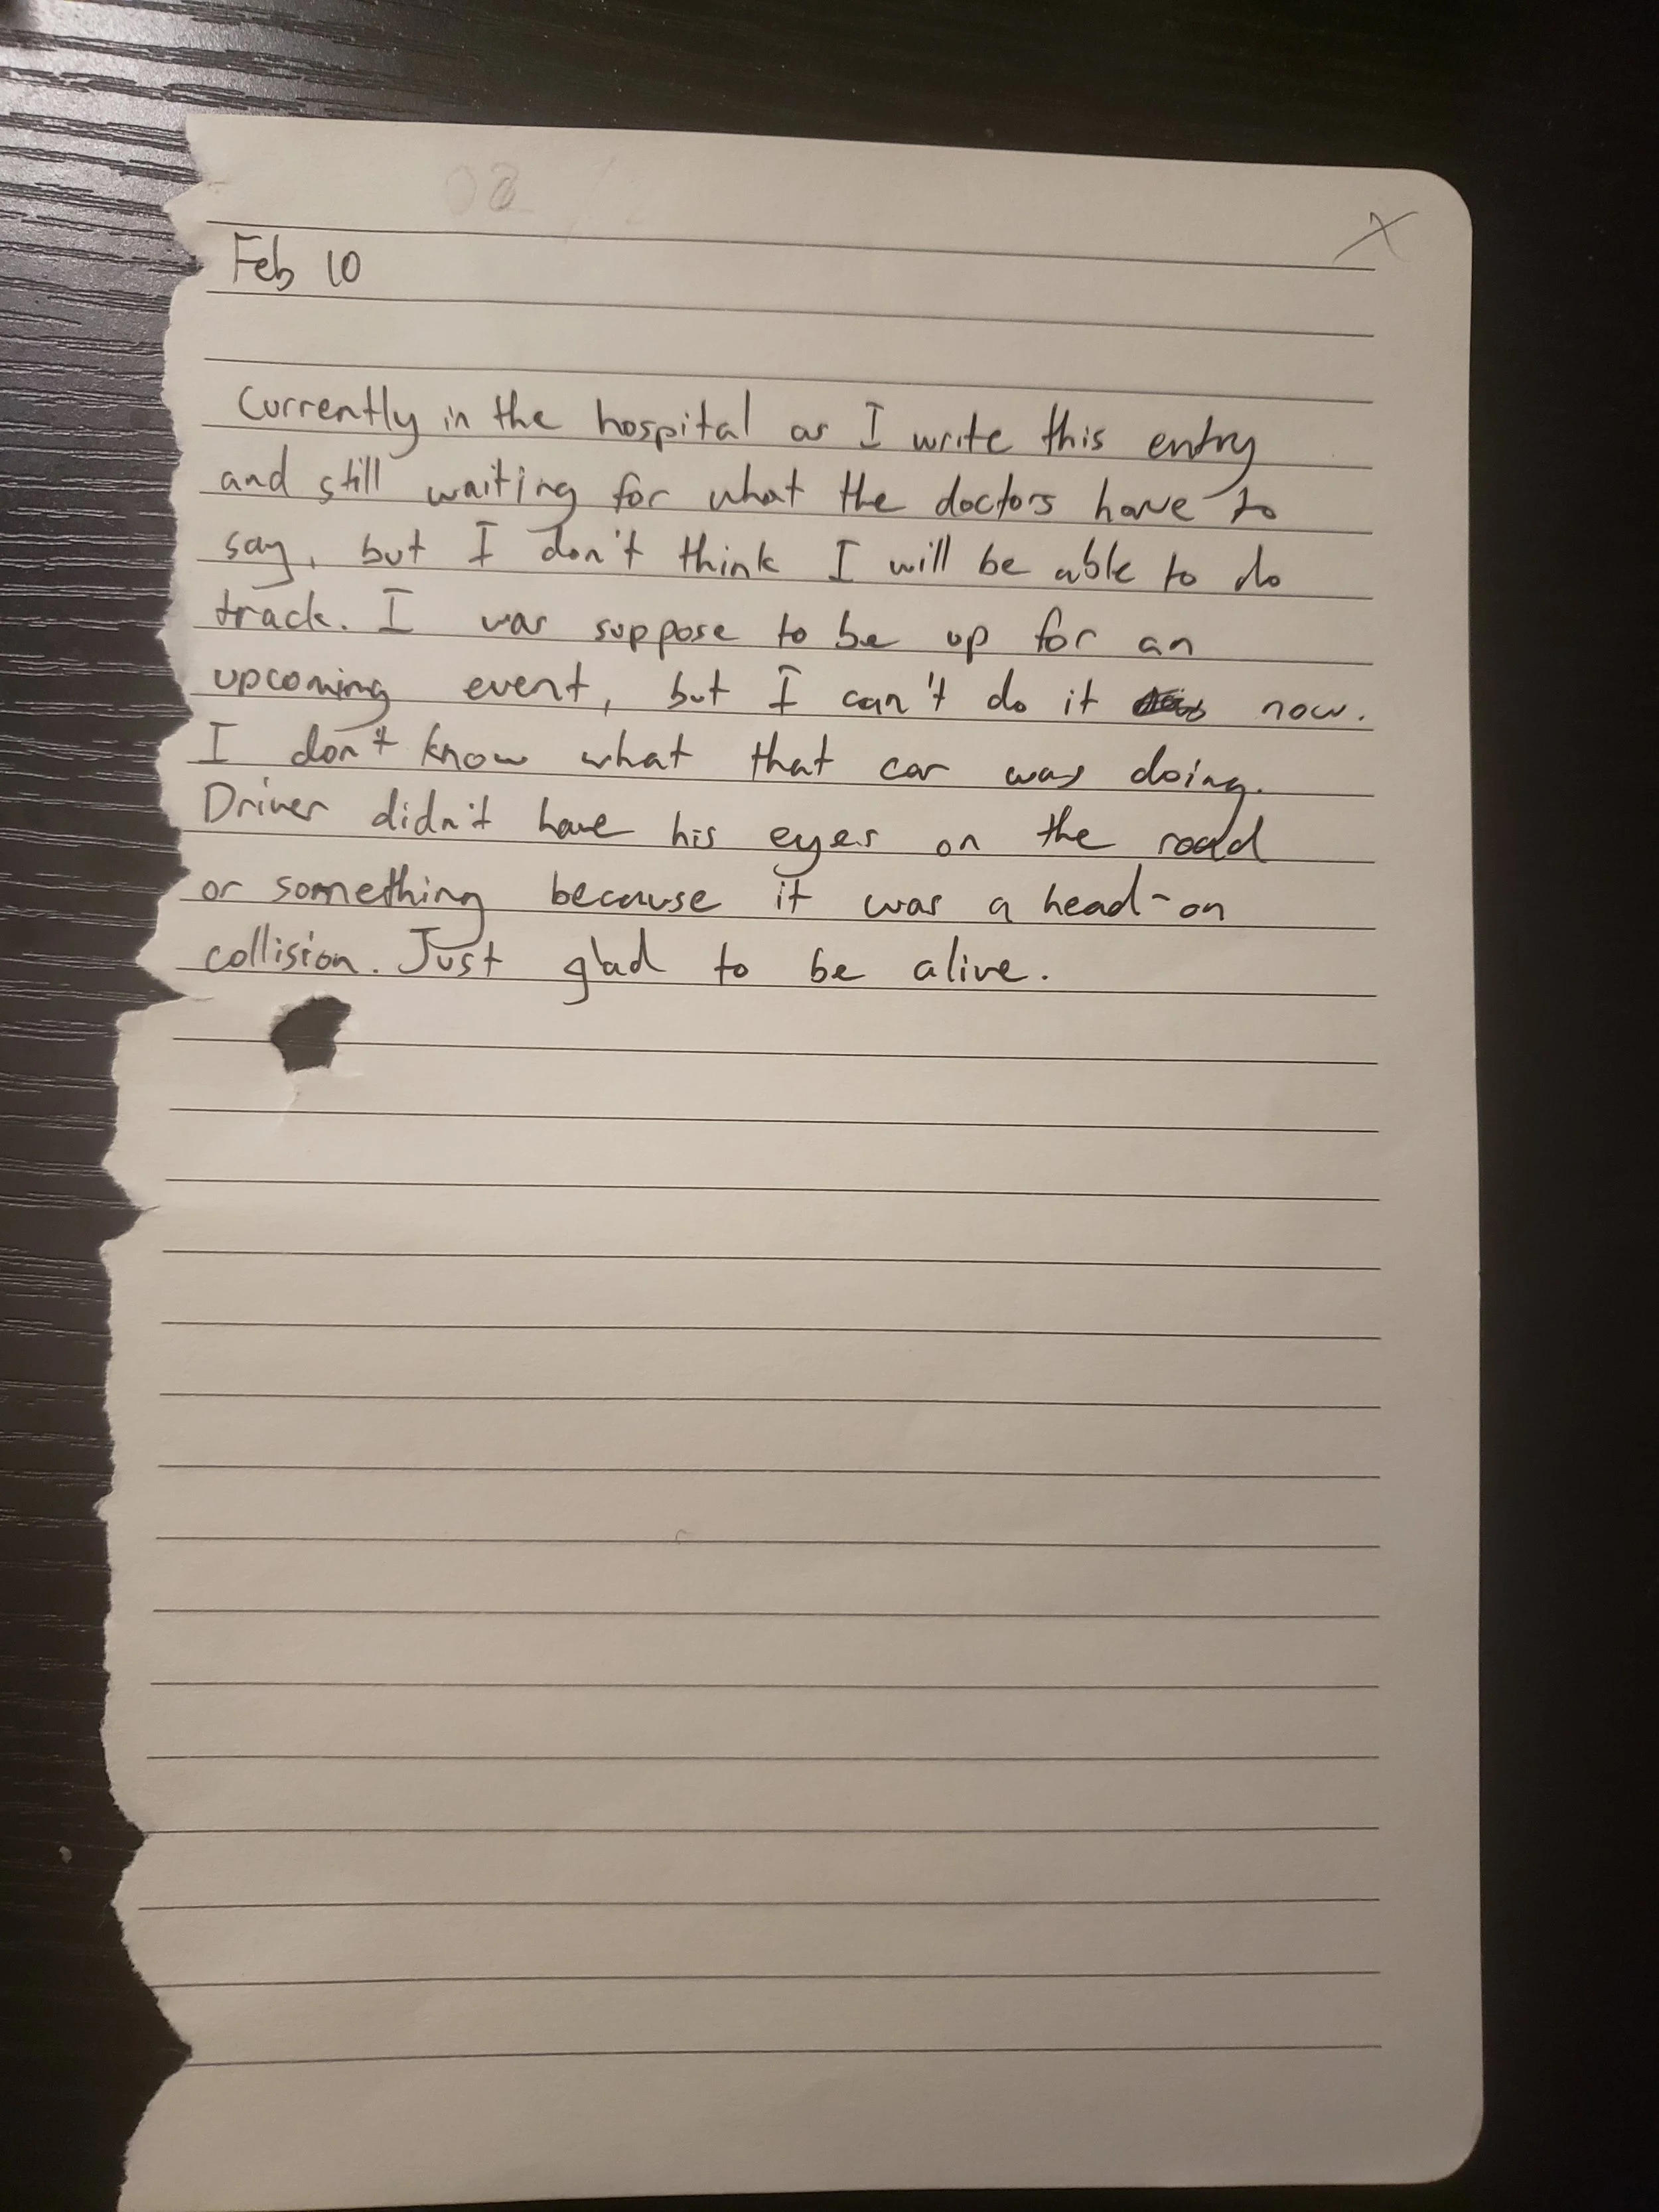 x
Feb 10
Currently in the hospital as I write this entry
and still waiting for what the doctors have to
say, but I don't think I will be able to do
track. I was suppose to be up for an
upcoming event, but I can't do it now.
I don't know what that car was doing.
Driver didn't have his eyes on the road
or something because it was a head-on
collision. Just glad to be alive.